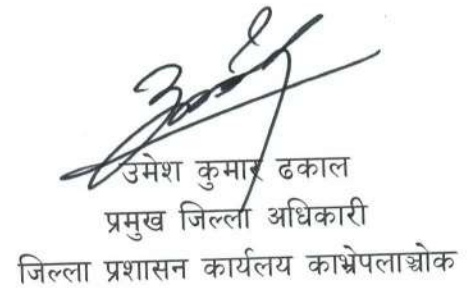 उमेश कुमार ढकाल
प्रमुख जिल्ला अधिकारी
जिल्ला प्रशासन कार्यलय काभ्रेपलाञ्चोक